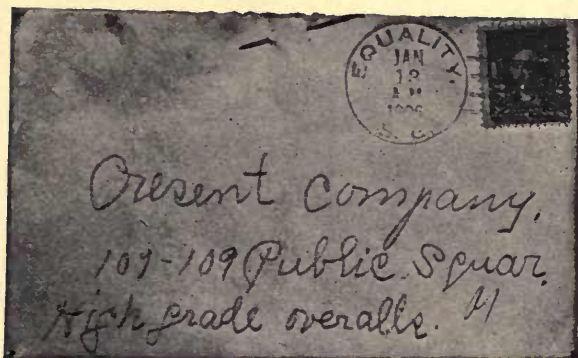 EQUALITY.
JAN
A.M.
S. C.
Cresent Company.
107-109 Public Squar.
High grade overalls.